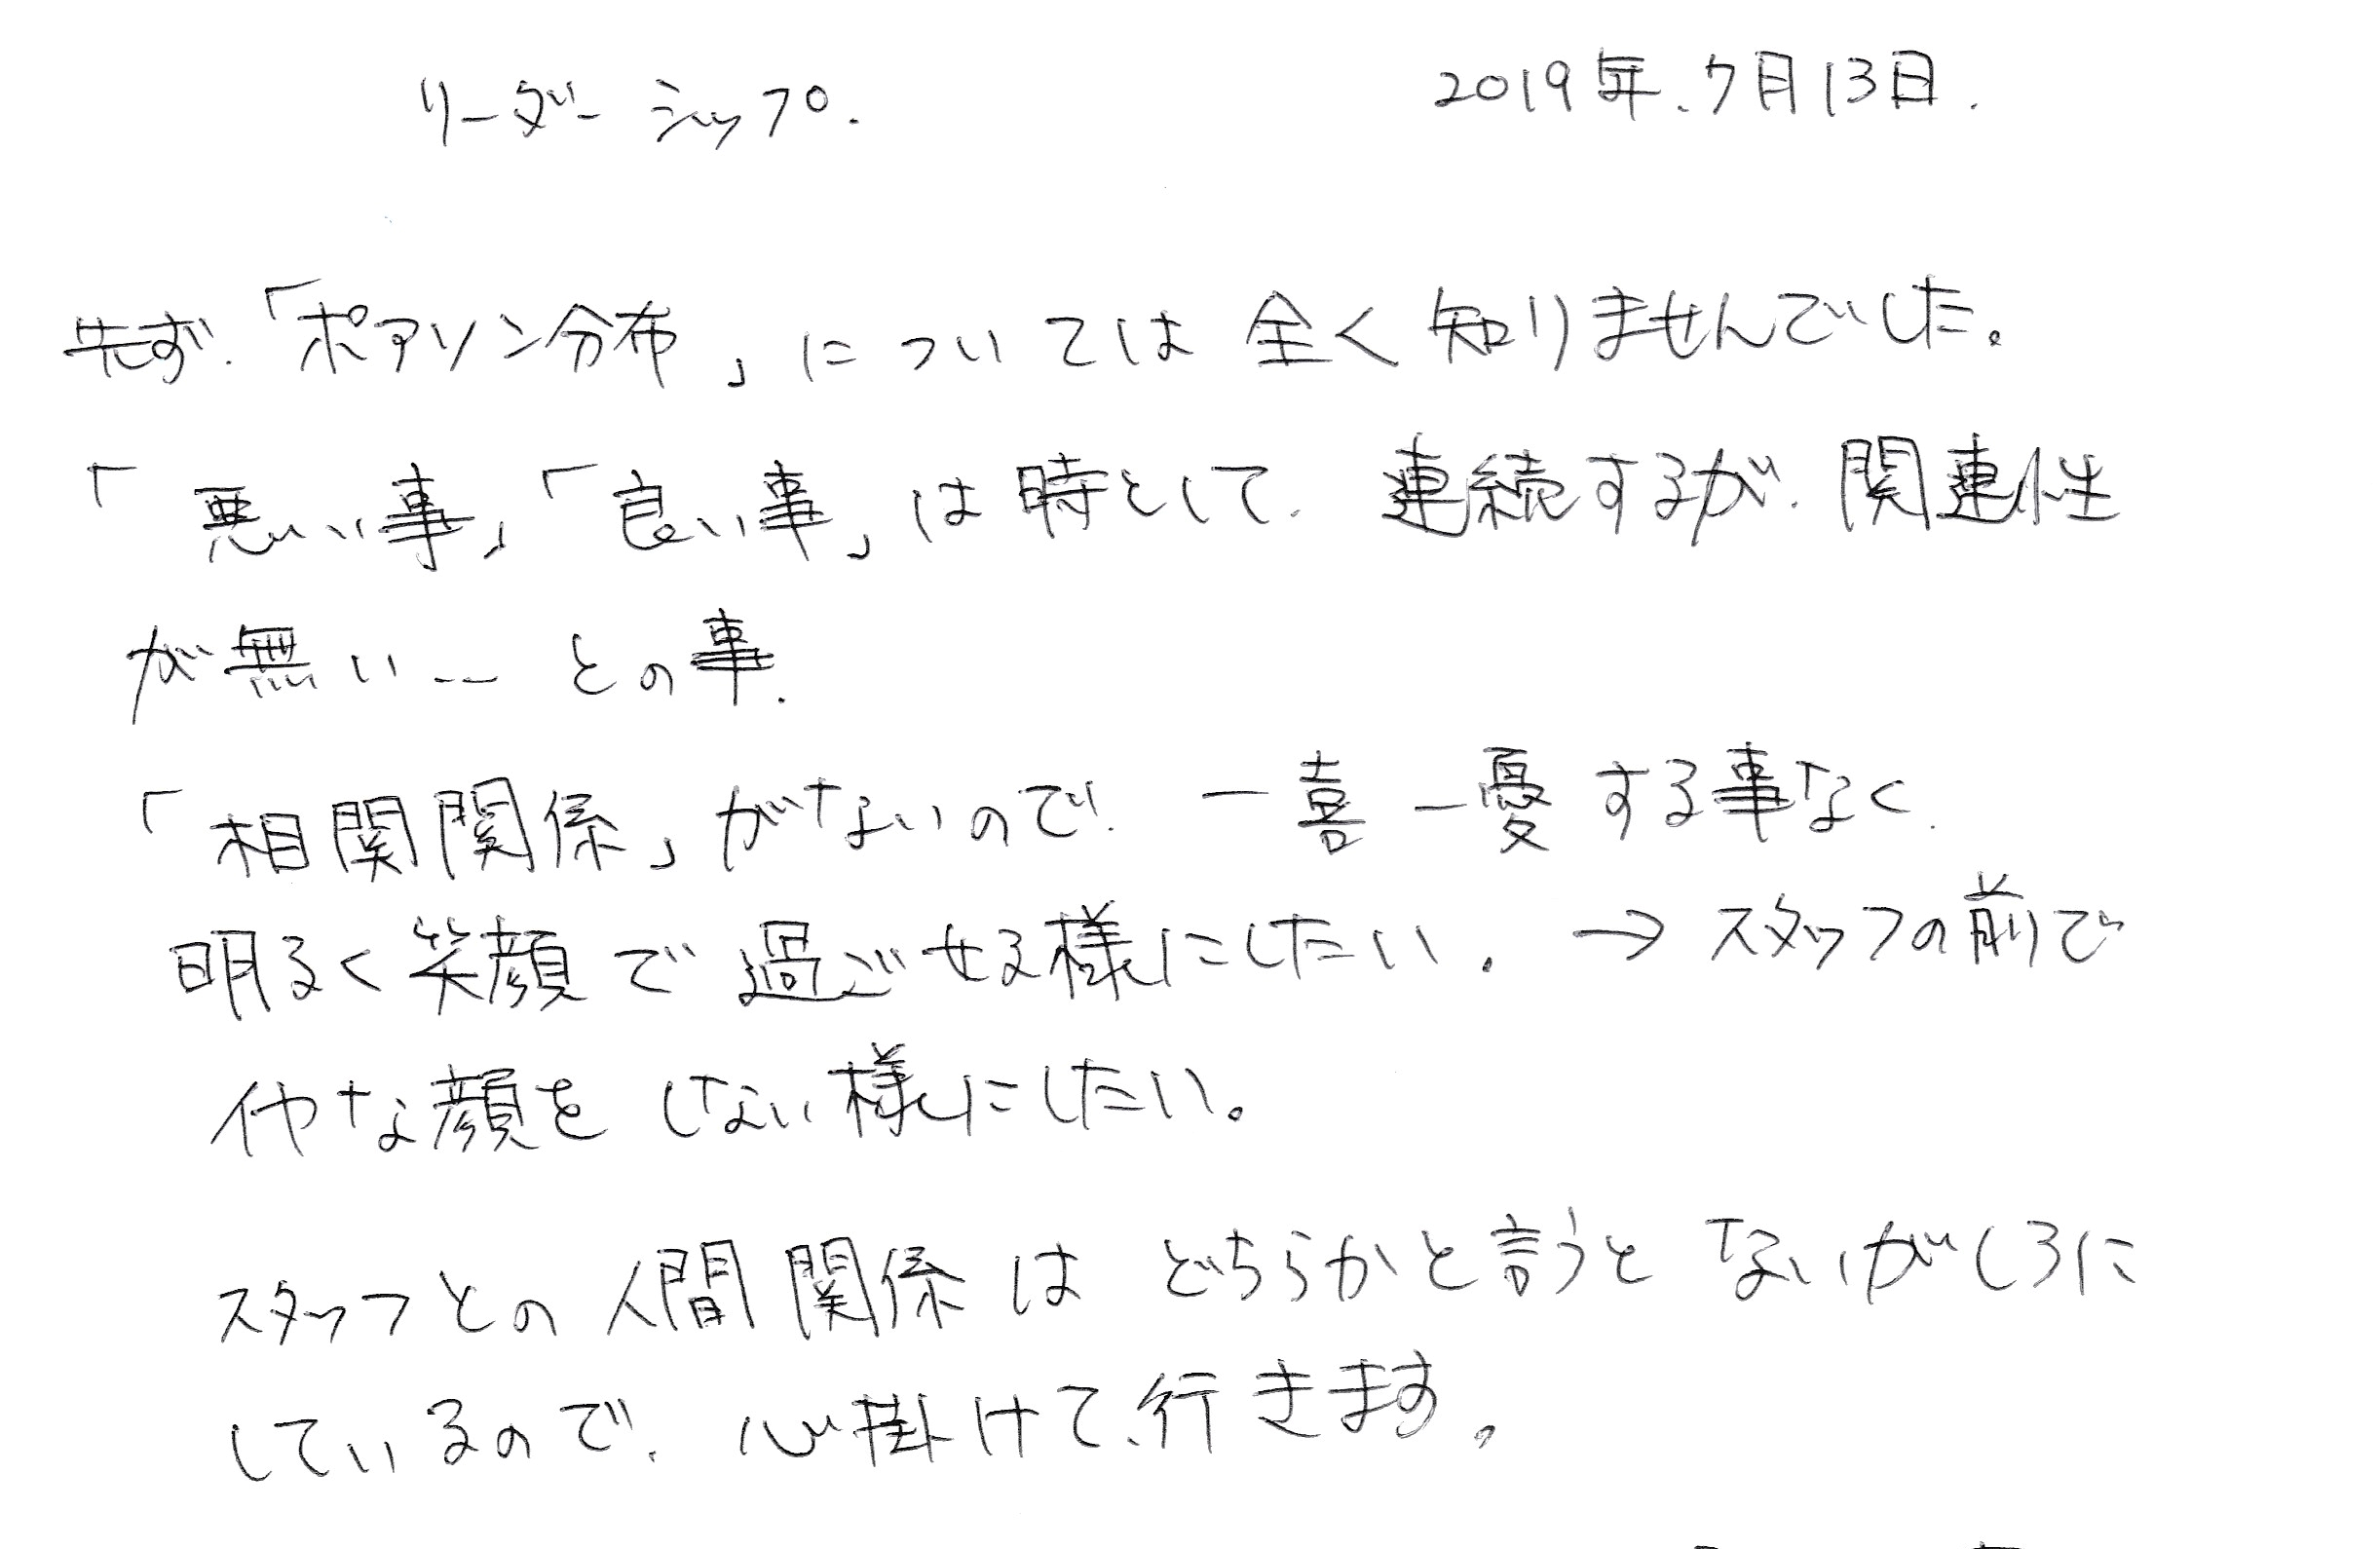 リーダーシップ. 2019年.7月13日.
先ず.「ポアソン分布」については全く知りませんでした。
「悪い事」「良い事」は時として. 連続するが. 関連性
が無い... との事.
「相関関係」がないので. 一喜一憂する事なく.
明るく笑顔で過ごせる様にしたい. → スタッフの前で
イヤな顔をしない様にしたい。
スタッフとの人間関係はどちらかと言うとないがしろに
しているので. 心掛けて行きます。